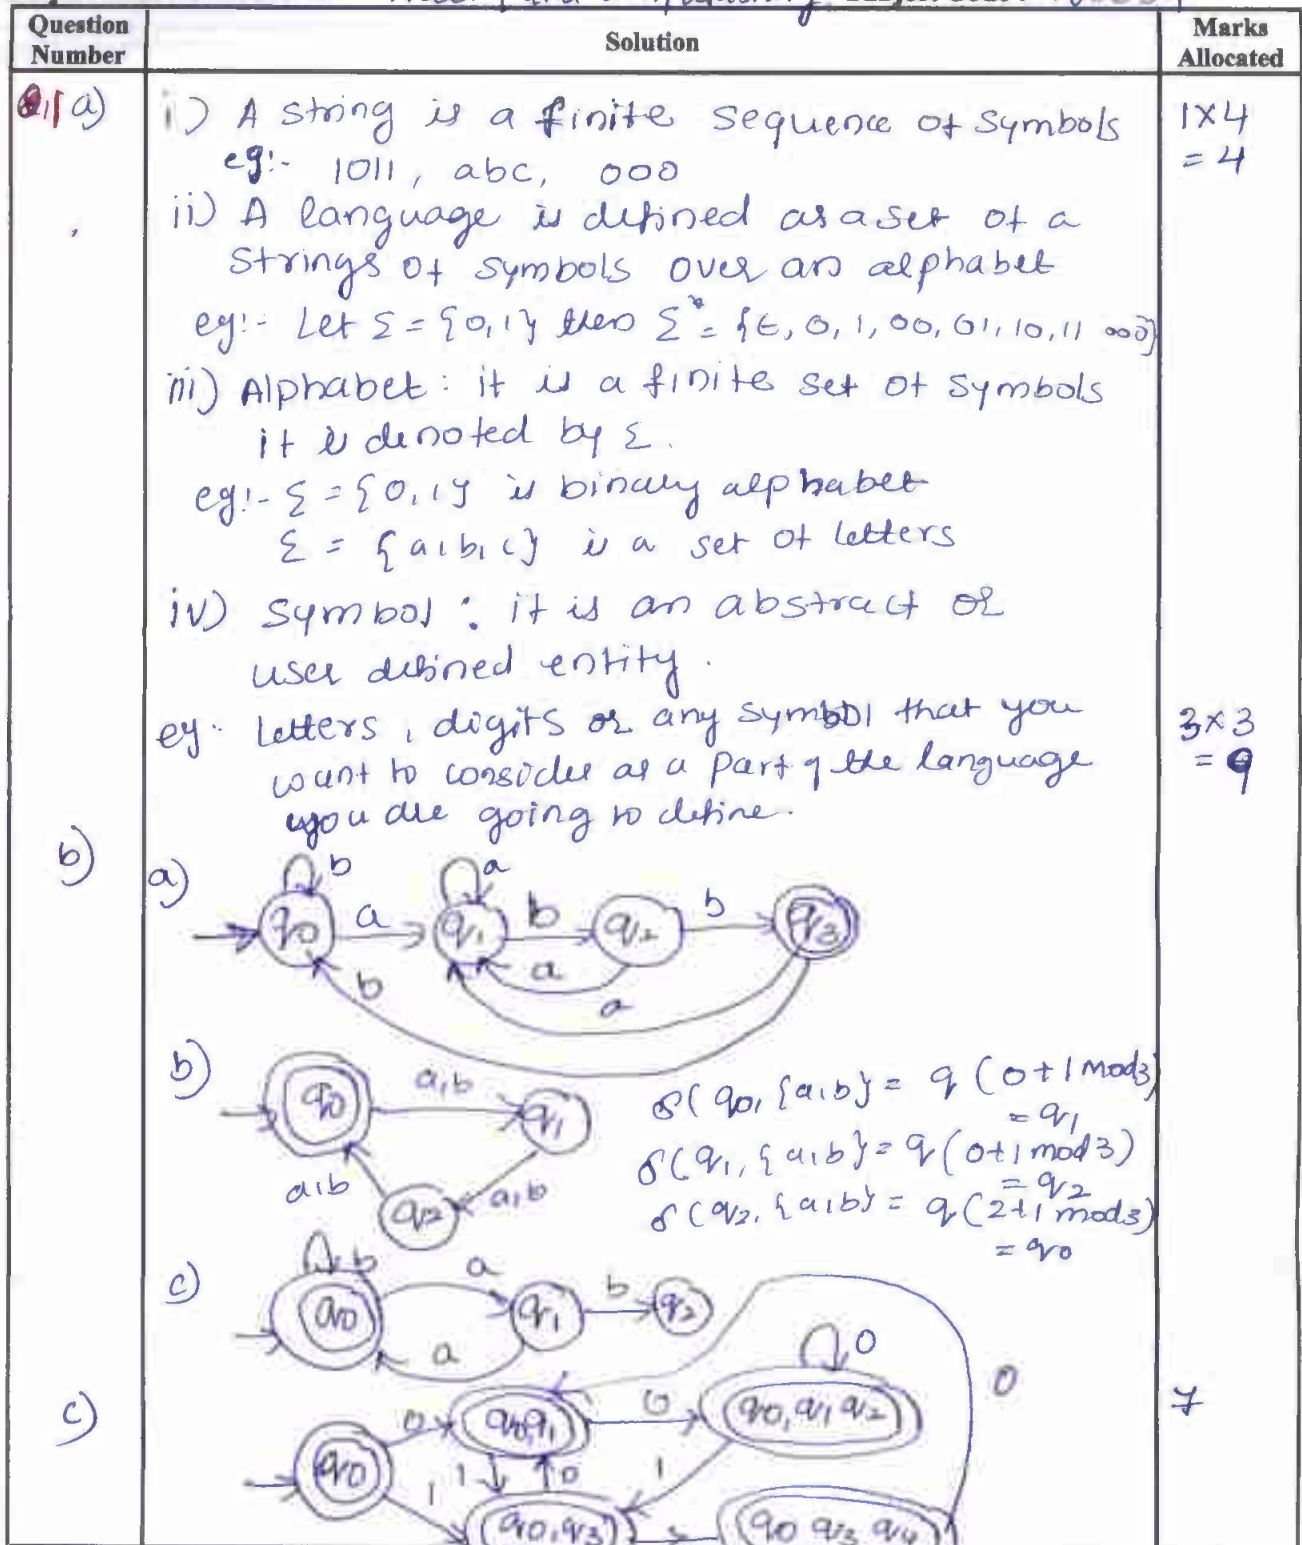 Question Number
Solution
Marks Allocated
Q.1 a)
i) A string is a finite sequence of symbols
eg:- 1011, abc, 000
1x4
= 4
ii) A language is defined as a set of a
strings of symbols over an alphabet
eg:- Let Σ = {0,1} then Σ* = {ε, 0, 1, 00, 01, 10, 11 ∞}
iii) Alphabet : it is a finite set of symbols
it is denoted by Σ.
eg:- Σ = {0,1} is binary alphabet
Σ = {a,b,c} is a set of letters
iv) Symbol : it is an abstract or
user defined entity.
eg: letters, digits or any symbol that you
want to consider as a part of the language
you are going to define.
3x3
= 9
b)
a)
b a
q0 a q1 b q2 b q3
a
b a
b)
q0 a,b q1
a,b q2 a,b
δ(q0, {a,b} = q (0+1 mod3)
= q1
δ(q1, {a,b} = q (0+1 mod 3)
= q2
δ(q2, {a,b} = q (2+1 mod3)
= q0
c)
b
q0 a q1 b q2
a
c)
7
0
0
q0 0 q0,q1 0 q0,q1 q2
1 1 0 1
q0,q3
q0 q3 q4